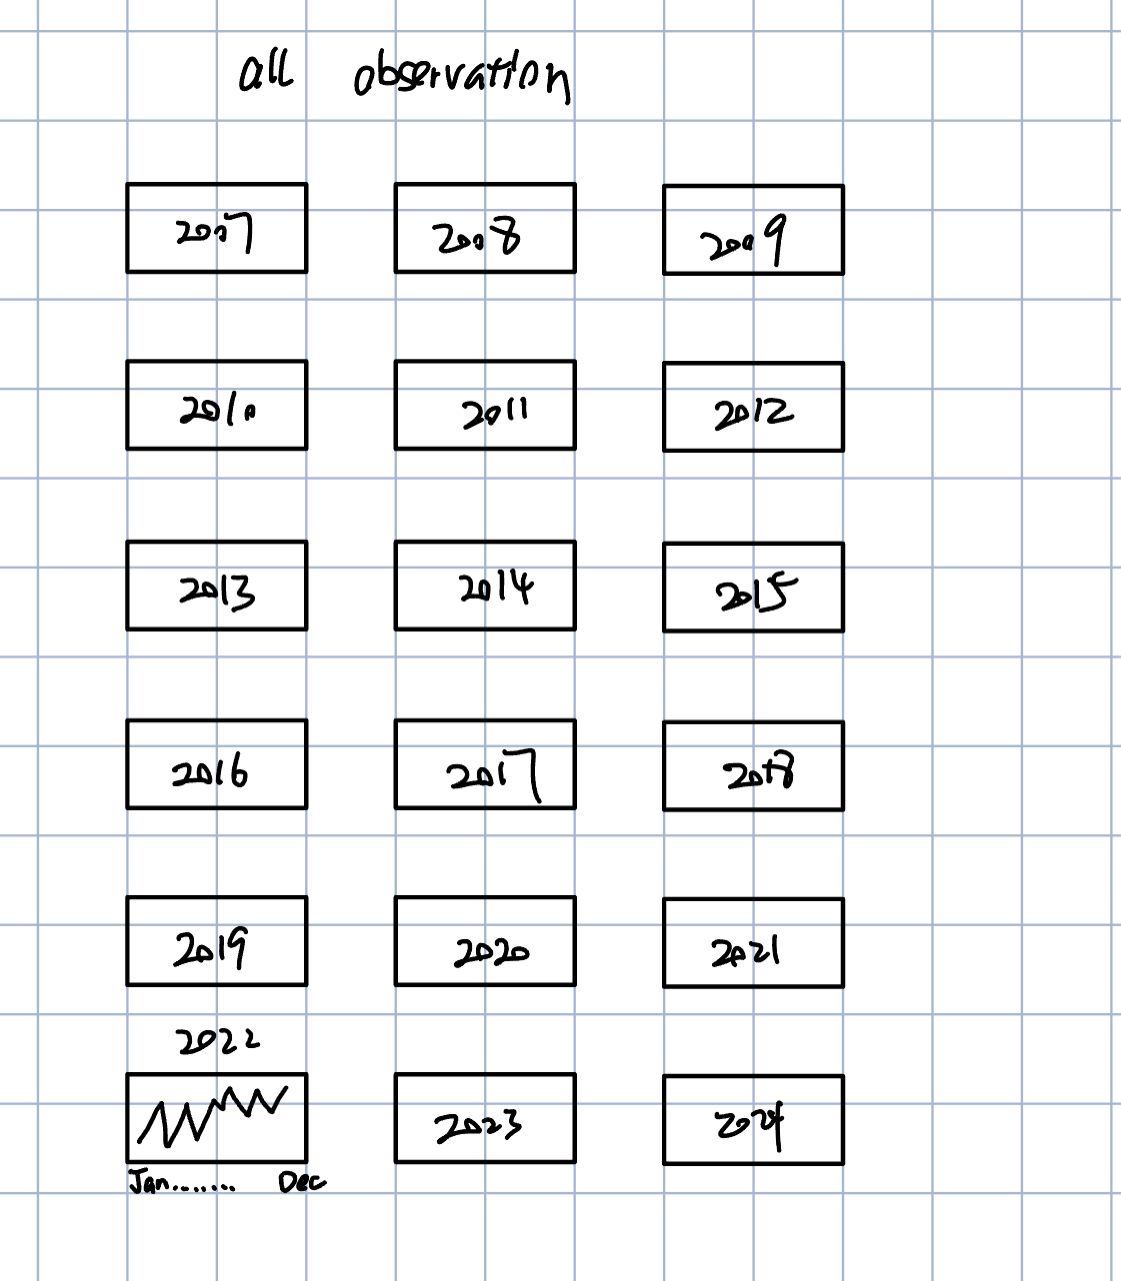 all observation
2007 2008 2009
2010 2011 2012
2013 2014 2015
2016 2017 2018
2019 2020 2021
2022
2023 2024
Jan........ Dec